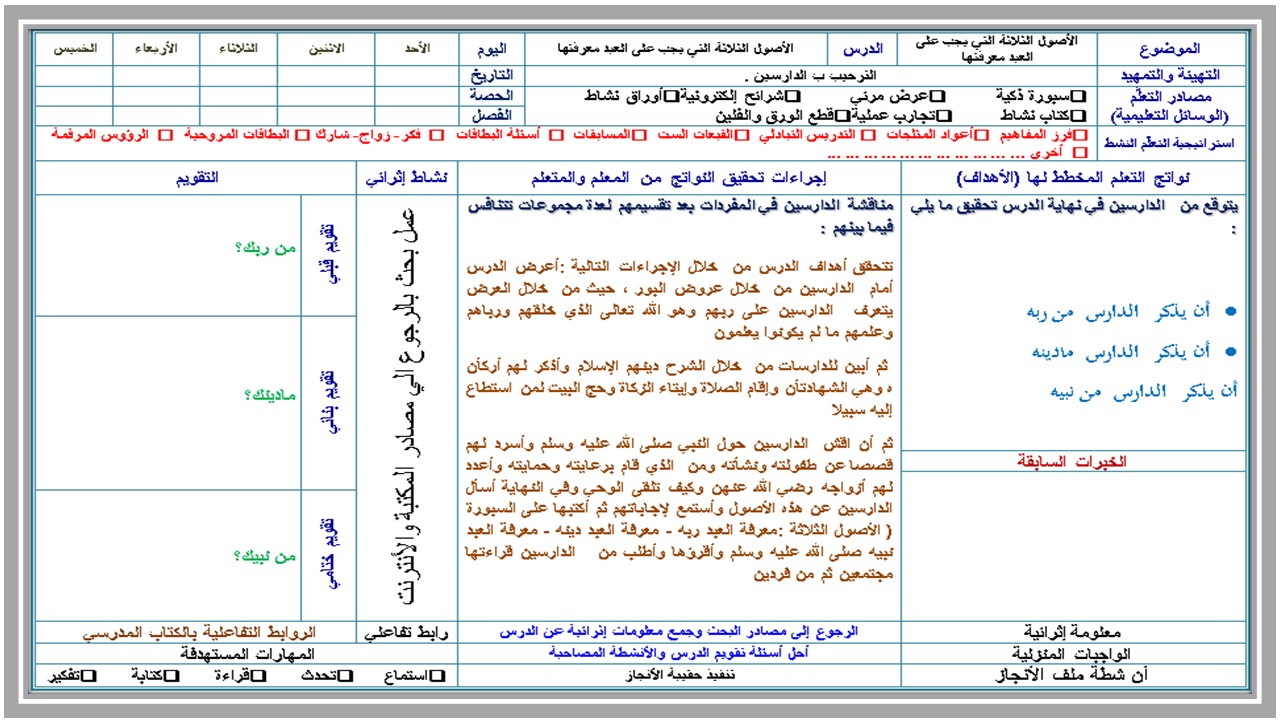 الموضوع
الأصول الثلاثة التي يجب على العبد معرفتها
الدرس
الأصول الثلاثة التي يجب على العبد معرفتها
اليوم
الأحد
الاثنين
الثلاثاء
الأربعاء
الخميس
التهيئة والتمهيد
الترحيب ب الدارسين .
التاريخ
مصادر التعلّم
(الوسائل التعليمية)
❑سبورة ذكية ❑عرض مرئي ❑شرائح إلكترونية ❑أوراق نشاط
❑كتاب نشاط ❑تجارب عملية ❑قطع الورق والفلين
الحصة
الفصل
استراتيجية التعلّم النشط
□فرز المفاهيم □أعواد المثلجات □التدريس التبادلي □القبعات الست □المسابقات □أسئلة البطاقات □ فكر- زواج- شارك □ البطاقات المروحية □ الرؤوس المرقمة
□ أخرى ... ... ... ... ... ... ... ... ... ... ...
نواتج التعلم المخطط لها (الأهداف)
إجراءات تحقيق النواتج من المعلم والمتعلم
نشاط إثرائي
التقويم
يتوقع من الدارسين في نهاية الدرس تحقيق ما يلي
:
● أن يذكر الدارس من ربه
● أن يذكر الدارس مادينه
أن يذكر الدارس من نبيه
الخبرات السابقة
مناقشة الدارسين في المفردات بعد تقسيمهم لعدة مجموعات تتنافس
فيما بينهم :
تتحقق أهداف الدرس من خلال الإجراءات التالية :أعرض الدرس
أمام الدارسين من خلال عروض البور ، حيث من خلال العرض
يتعرف الدارسين على ربهم وهو الله تعالى الذي خلقهم ورباهم
وعلمهم ما لم يكونوا يعلمون
ثم أبين للدارسات من خلال الشرح دينهم الإسلام وأذكر لهم أركأن
ه وهي الشهادتأن وإقام الصلاة وإيتاء الزكاة وحج البيت لمن استطاع
إليه سبيلا
ثم أن اقش الدارسين حول النبي صلى الله عليه وسلم وأسرد لهم
قصصا عن طفولته ونشأته ومن الذي قام برعايته وحمايته وأعدد
لهم أزواجه رضي الله عنهن وكيف تلقى الوحي وفي النهاية أسأل
الدارسين عن هذه الأصول وأستمع لإجاباتهم ثم أكتبها على السبورة
( الأصول الثلاثة :معرفة العبد ربه - معرفة العبد دينه - معرفة العبد
نبيه صلى الله عليه وسلم وأقرؤها وأطلب من الدارسين قراءتها
مجتمعين ثم من فردين
عمل بحث بالرجوع الي مصادر المكتبة والأنترنت
تقويم قبلي
من ربك؟
تقويم بنائي
مادينك؟
تقويم ختامي
من نبيك؟
معلومة إثرائية
الرجوع إلى مصادر البحث وجمع معلومات إثرائية عن الدرس
رابط تفاعلي
الروابط التفاعلية بالكتاب المدرسي
الواجبات المنزلية
أحل أسئلة تقويم الدرس والأنشطة المصاحبة
المهارات المستهدفة
أن شطة ملف الأنجاز
تنفيذ حقيبة الأنجاز
❑استماع ❑تحدث ❑قراءة ❑كتابة ❑تفكير